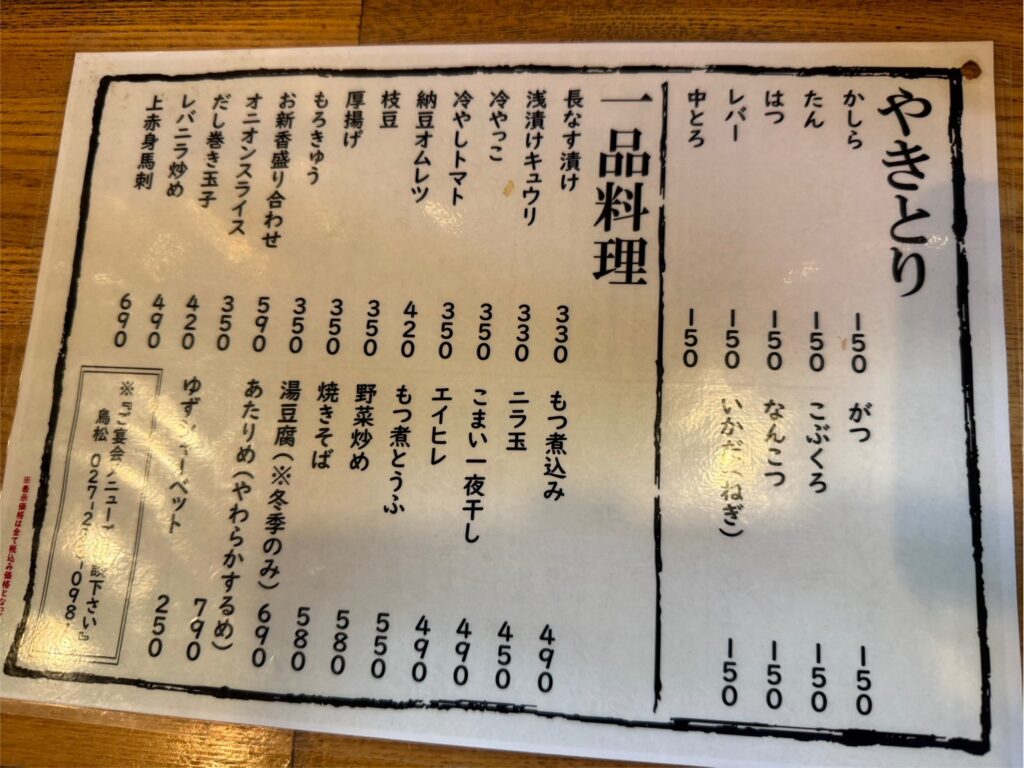 やきとり
かしら 150
たん 150
はつ 150
レバー 150
中とろ 150
がつ 150
こぶくろ 150
なんこつ 150
いかだ(ねぎ) 150
一品料理
長なす漬け 330
浅漬けキュウリ 330
冷やっこ 350
冷やしトマト 350
納豆オムレツ 420
枝豆 350
厚揚げ 350
もろきゅう 350
お新香盛り合わせ 590
オニオンスライス 350
だし巻き玉子 420
レバニラ炒め 490
上赤身馬刺 690
もつ煮込み 490
ニラ玉 450
こまい一夜干し 490
エイヒレ 490
もつ煮とうふ 550
野菜炒め 580
焼きそば 580
湯豆腐(※冬季のみ) 690
あたりめ(やわらかするめ) 790
ゆずシャーベット 250
※『ご宴会メニューご 談下さい』
鳥松 027-2
※表示価格は全て税込み価格とな